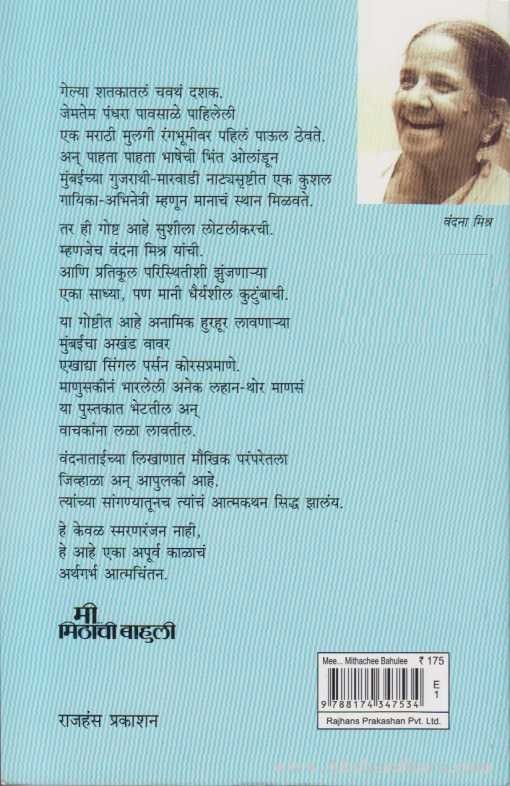 गेल्या शतकातलं चवथं दशक.
जेमतेम पंधरा पावसाळे पाहिलेली
एक मराठी मुलगी रंगभूमीवर पहिलं पाऊल ठेवते.
अन् पाहता पाहता भाषेची भिंत ओलांडून
मुंबईच्या गुजराथी-मारवाडी नाट्यसृष्टीत एक कुशल
गायिका-अभिनेत्री म्हणून मानाचं स्थान मिळवते.
वंदना मिश्र
तर ही गोष्ट आहे सुशीला लोटलीकरची.
म्हणजेच वंदना मिश्र यांची.
आणि प्रतिकूल परिस्थितीशी झुंजणाऱ्या
एका साध्या, पण मानी धैर्यशील कुटुंबाची.
या गोष्टीत आहे अनामिक हुरहूर लावणाऱ्या
मुंबईचा अखंड वावर
एखाद्या सिंगल पर्सन कोरसप्रमाणे.
माणुसकीनं भारलेली अनेक लहान-थोर माणसं
या पुस्तकात भेटतील अन्
वाचकांना लळा लावतील.
वंदनाताईंच्या लिखाणात मौखिक परंपरेतला
जिव्हाळा अन् आपुलकी आहे.
त्यांच्या सांगण्यातूनच त्यांचं आत्मकथन सिद्ध झालंय.
हे केवळ स्मरणरंजन नाही,
हे आहे एका अपूर्व काळाचं
अर्थगर्भ आत्मचिंतन.
मी
मिठाची बाहुली
Mee... Mithachee Bahulee ₹ 175
E
1
9 788174 347534
Rajhans Prakashan Pvt. Ltd.
राजहंस प्रकाशन